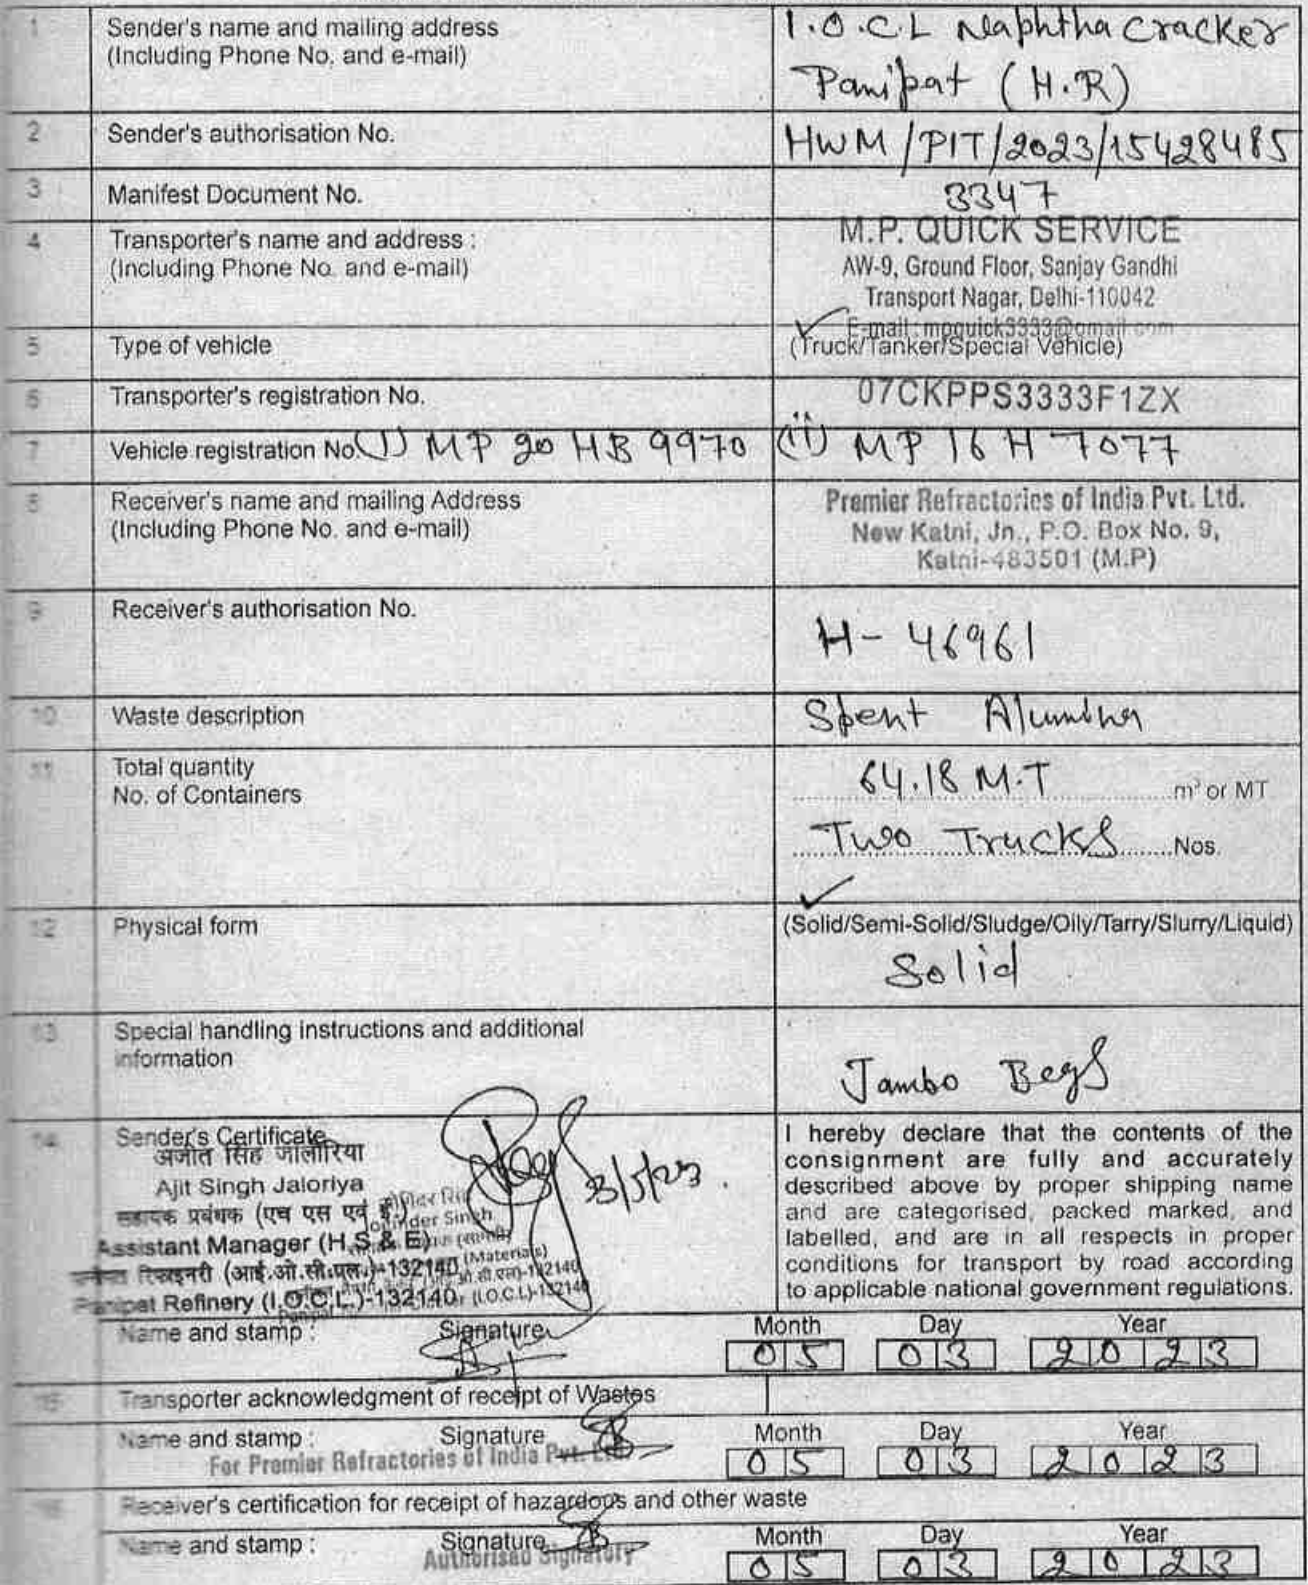 1 Sender's name and mailing address
(Including Phone No. and e-mail)
I.O.C.L Naphtha Cracker
Panipat (H.R)
2 Sender's authorisation No. HWM/PIT/2023/15428485
3 Manifest Document No. 3347
4 Transporter's name and address :
(Including Phone No. and e-mail)
M.P. QUICK SERVICE
AW-9, Ground Floor, Sanjay Gandhi
Transport Nagar, Delhi-110042
E-mail : mpquick3333@gmail.com
5 Type of vehicle (Truck/Tanker/Special Vehicle)
6 Transporter's registration No. 07CKPPS3333F1ZX
7 Vehicle registration No. (i) MP 20 HB 9970 (ii) MP 16 H 7077
8 Receiver's name and mailing Address
(Including Phone No. and e-mail)
Premier Refractories of India Pvt. Ltd.
New Katni, Jn., P.O. Box No. 9,
Katni-483501 (M.P)
9 Receiver's authorisation No.
H- 46961
10 Waste description Spent Alumina
11 Total quantity
No. of Containers
64.18 M.T m³ or MT
Two Trucks Nos.
12 Physical form (Solid/Semi-Solid/Sludge/Oily/Tarry/Slurry/Liquid)
Solid
13 Special handling instructions and additional
information
Jambo Begs
14 Sender's Certificate
अजीत सिंह जालोरिया
Ajit Singh Jaloriya
सहायक प्रबंधक (एच एस एवं ई)
Assistant Manager (H,S & E)
रिफाइनरी (आई.ओ.सी.एल.)-132140
Panipat Refinery (I.O.C.L.)-132140
Singh
(Materials)
(I.O.C.L)-132140
3/5/23.
I hereby declare that the contents of the
consignment are fully and accurately
described above by proper shipping name
and are categorised, packed marked, and
labelled, and are in all respects in proper
conditions for transport by road according
to applicable national government regulations.
Name and stamp : Signature Month Day Year
05 03 2023
15 Transporter acknowledgment of receipt of Wastes
Name and stamp : Signature Month Day Year
For Premier Refractories of India Pvt. Ltd. 05 03 2023
16 Receiver's certification for receipt of hazardous and other waste
Name and stamp : Signature Month Day Year
Authorised Signatory 05 03 2023